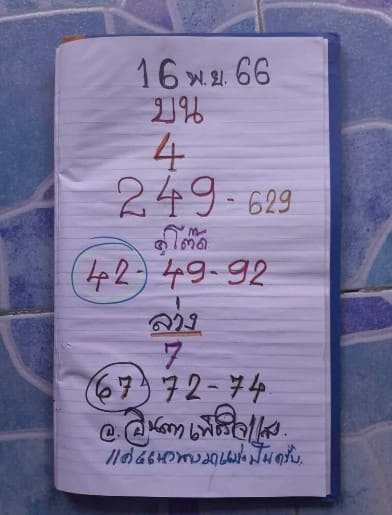 16 พ.ย. 66
บน
4
249 - 629
คู่โต๊ด
42 - 49 - 92
ล่าง
7
67 72 - 74
อ.